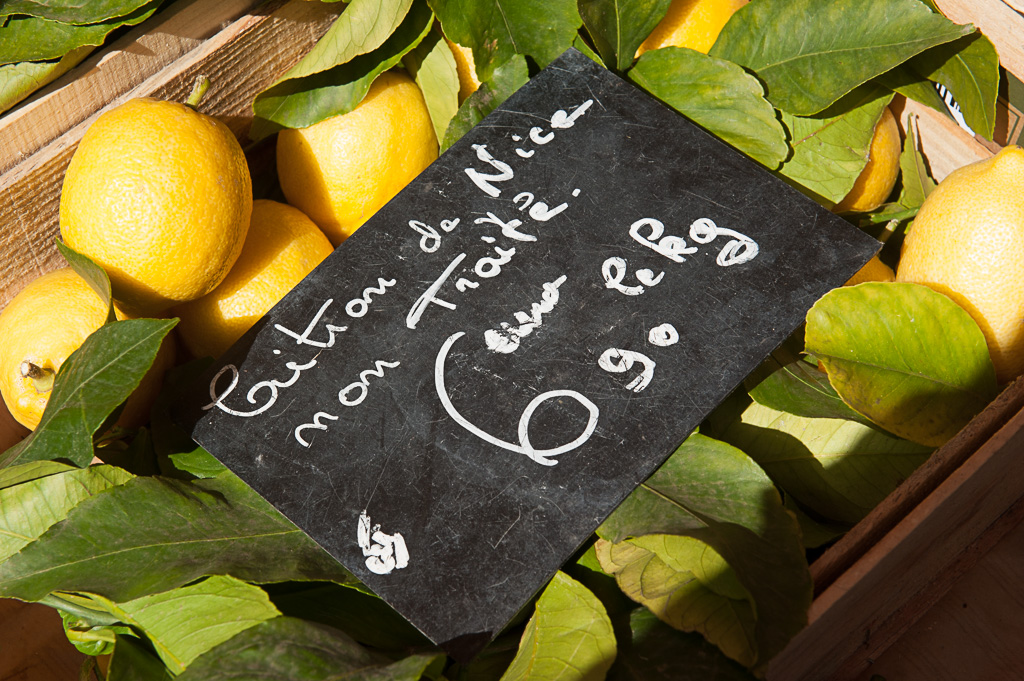 Citron de Nice
non Traité.
6 euros
90 le kg